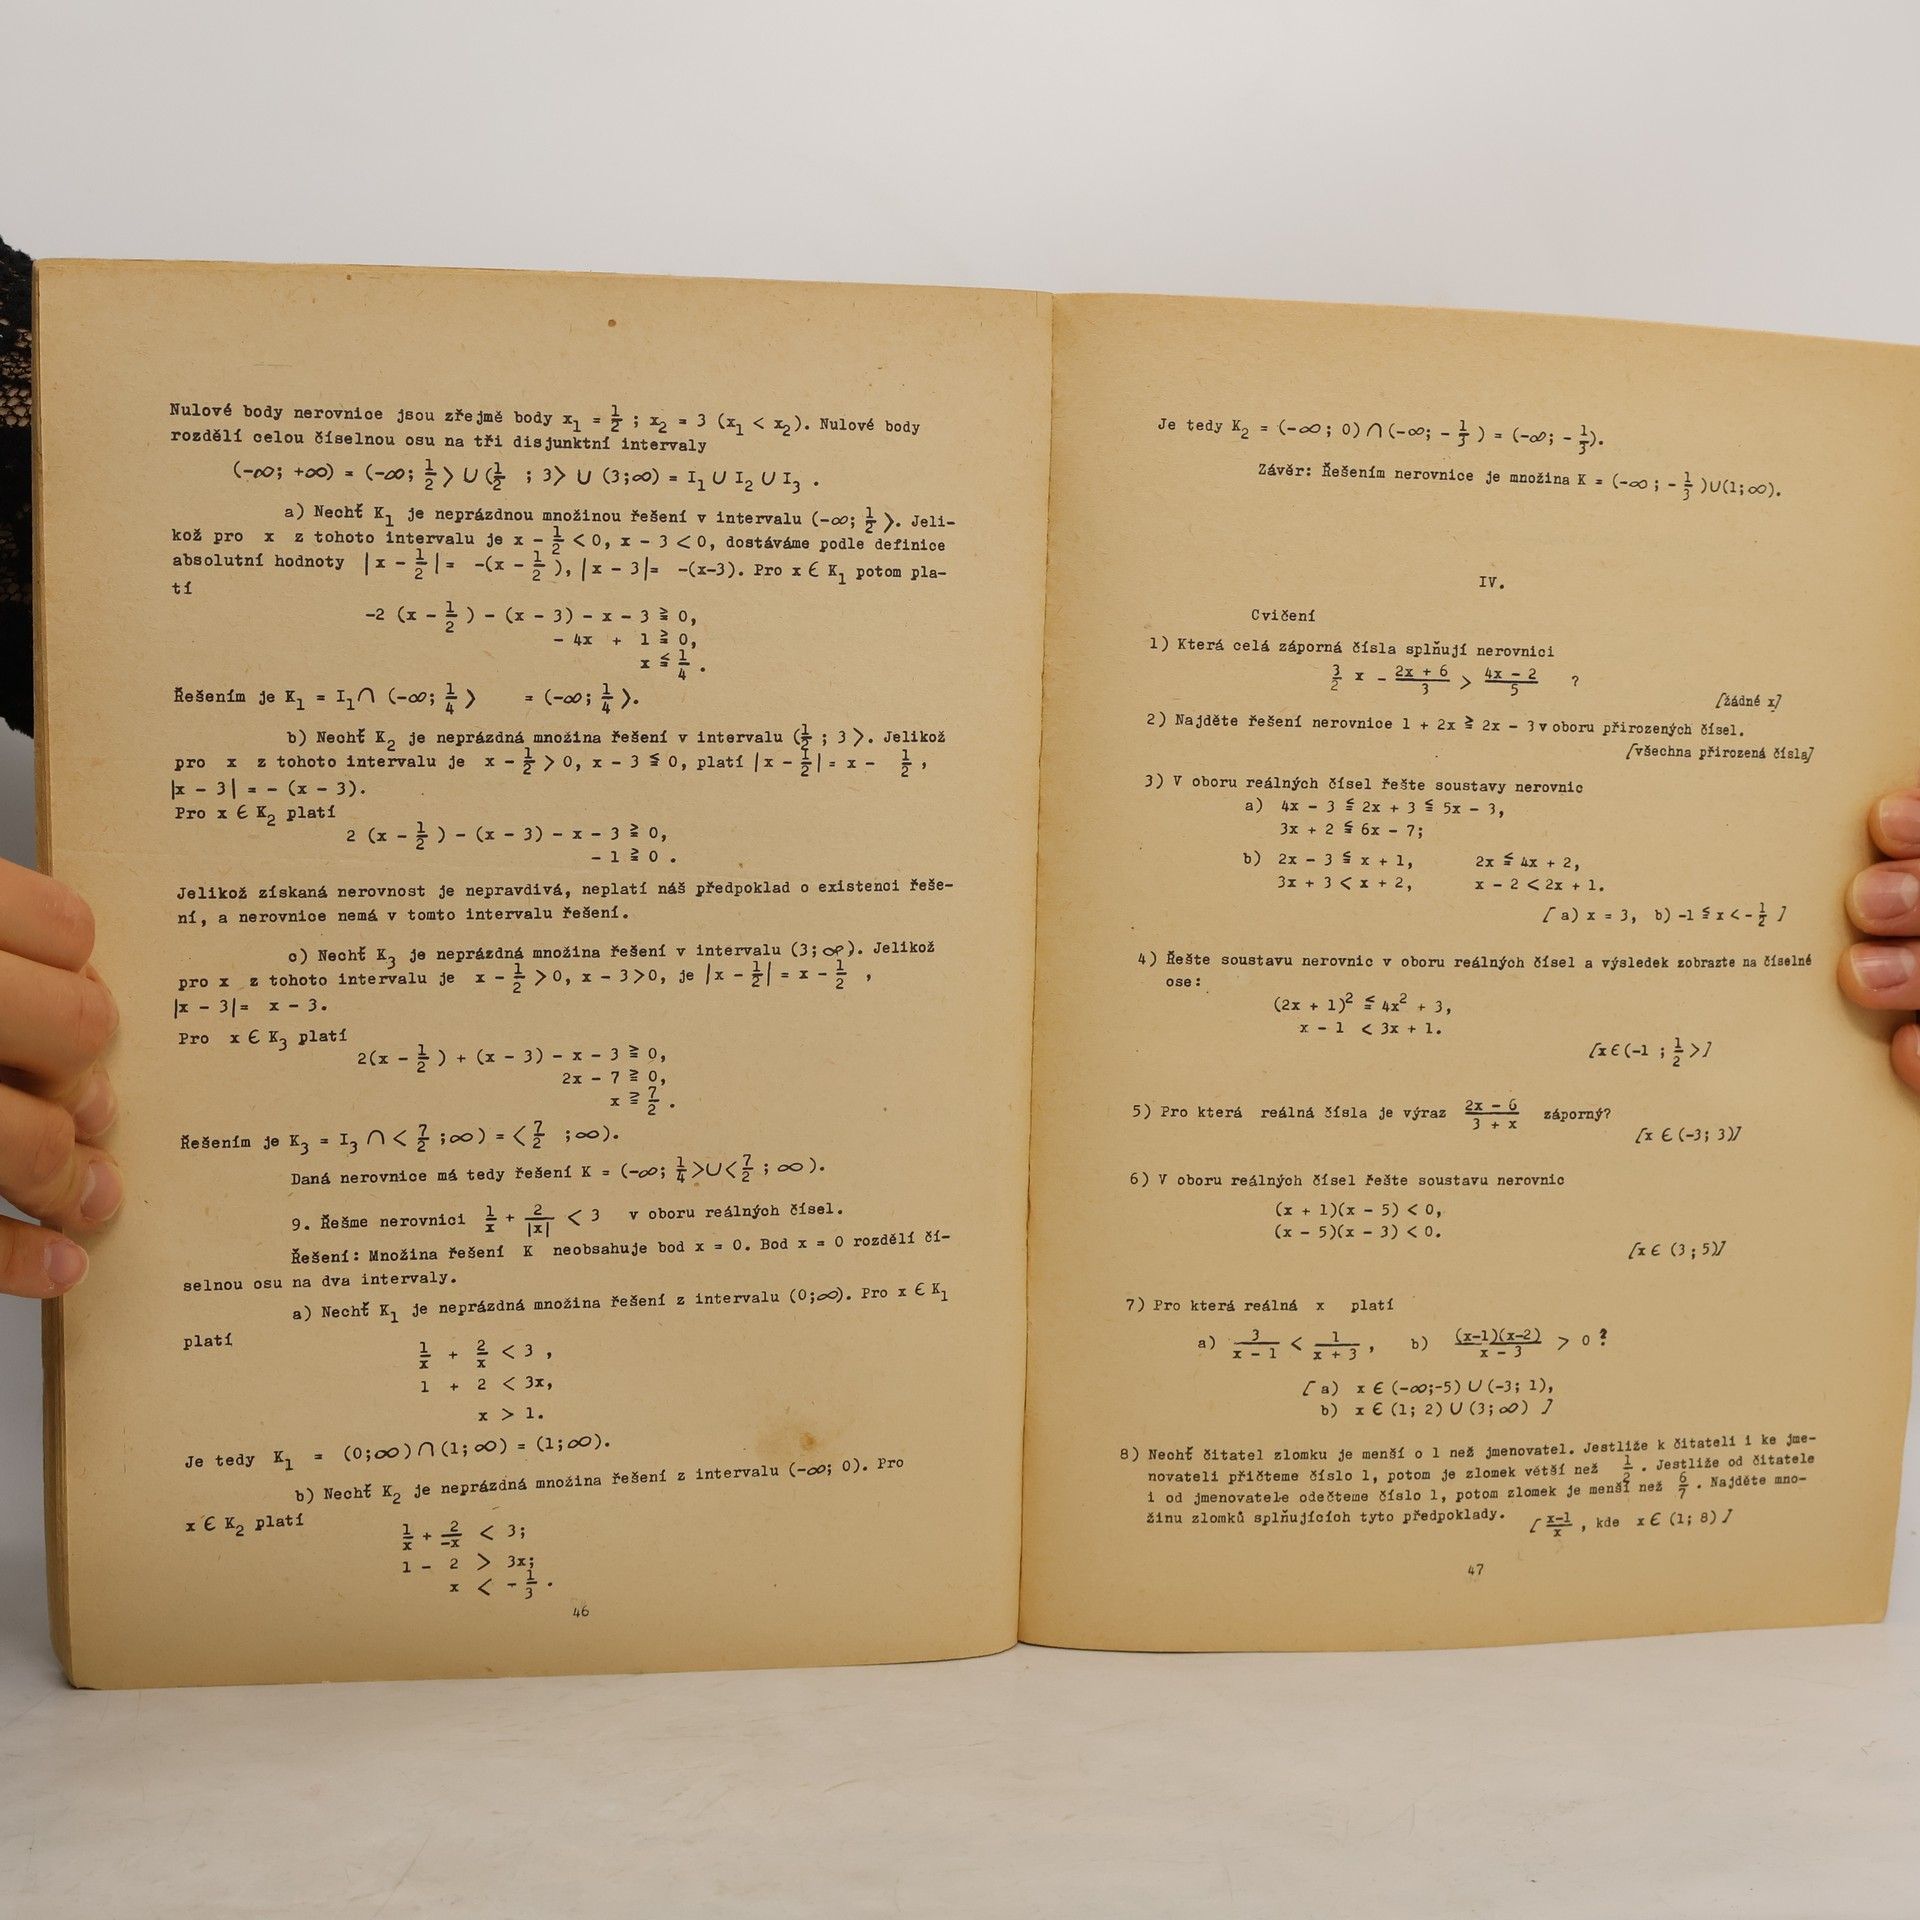 Nulové body nerovnice jsou zřejmě body x₁ = 1/2 ; x₂ = 3 (x₁ < x₂). Nulové body
rozdělí celou číselnou osu na tři disjunktní intervaly
(-∞; +∞) = (-∞; 1/2 〉 ∪ (1/2 ; 3〉 ∪ (3;∞) = I₁ ∪ I₂ ∪ I₃ .
a) Nechť K₁ je neprázdnou množinou řešení v intervalu (-∞; 1/2 〉. Jeli-
kož pro x z tohoto intervalu je x - 1/2 < 0, x - 3 < 0, dostáváme podle definice
absolutní hodnoty |x - 1/2| = -(x - 1/2 ), |x - 3|= -(x-3). Pro x ∈ K₁ potom pla-
tí
-2 (x - 1/2 ) - (x - 3) - x - 3 ≧ 0,
- 4x + 1 ≧ 0,
x ≦ 1/4 .
Řešením je K₁ = I₁∩ (-∞; 1/4 〉 = (-∞; 1/4 〉.
b) Nechť K₂ je neprázdná množina řešení v intervalu (1/2 ; 3 〉. Jelikož
pro x z tohoto intervalu je x - 1/2 > 0, x - 3 ≦ 0, platí |x - 1/2| = x - 1/2 ,
|x - 3| = - (x - 3).
Pro x ∈ K₂ platí
2 (x - 1/2 ) - (x - 3) - x - 3 ≧ 0,
- 1 ≧ 0 .
Jelikož získaná nerovnost je nepravdivá, neplatí náš předpoklad o existenci řeše-
ní, a nerovnice nemá v tomto intervalu řešení.
c) Nechť K₃ je neprázdná množina řešení v intervalu (3;∞). Jelikož
pro x z tohoto intervalu je x - 1/2 > 0, x - 3>0, je |x - 1/2| = x - 1/2 ,
|x - 3|= x - 3.
Pro x ∈ K₃ platí
2(x - 1/2 ) + (x - 3) - x - 3 ≧ 0,
2x - 7 ≧ 0,
x ≧ 7/2 .
Řešením je K₃ = I₃ ∩ < 7/2 ;∞) = < 7/2 ;∞).
Daná nerovnice má tedy řešení K = (-∞; 1/4 >∪< 7/2 ; ∞ ).
9. Řešme nerovnici 1/x + 2/|x| < 3 v oboru reálných čísel.
Řešení: Množina řešení K neobsahuje bod x = 0. Bod x = 0 rozdělí čí-
selnou osu na dva intervaly.
a) Nechť K₁ je neprázdná množina řešení z intervalu (0;∞). Pro x ∈ K₁
platí
1/x + 2/x < 3 ,
1 + 2 < 3x,
x > 1.
Je tedy K₁ = (0;∞)∩(1;∞) = (1;∞).
b) Nechť K₂ je neprázdná množina řešení z intervalu (-∞; 0). Pro
x ∈ K₂ platí
1/x + 2/-x < 3;
1 - 2 > 3x;
x < - 1/3 .
46
Je tedy K₂ = (-∞; 0)∩(-∞; - 1/3 ) = (-∞; - 1/3).
Závěr: Řešením nerovnice je množina K = (-∞ ; - 1/3 )∪(1;∞).
IV.
Cvičení
1) Která celá záporná čísla splňují nerovnici
3/2 x - (2x + 6)/3 > (4x - 2)/5 ?
[žádné x]
2) Najděte řešení nerovnice 1 + 2x ≧ 2x - 3 v oboru přirozených čísel.
[všechna přirozená čísla]
3) V oboru reálných čísel řešte soustavy nerovnic
a) 4x - 3 ≦ 2x + 3 ≦ 5x - 3,
3x + 2 ≦ 6x - 7;
b) 2x - 3 ≦ x + 1, 2x ≦ 4x + 2,
3x + 3 < x + 2, x - 2 < 2x + 1.
[ a) x = 3, b) -1 ≦ x < - 1/2 ]
4) Řešte soustavu nerovnic v oboru reálných čísel a výsledek zobrazte na číselné
ose:
(2x + 1)² ≦ 4x² + 3,
x - 1 < 3x + 1.
[x∈(-1 ; 1/2 >]
5) Pro která reálná čísla je výraz (2x - 6)/(3 + x) záporný?
[x ∈ (-3; 3)]
6) V oboru reálných čísel řešte soustavu nerovnic
(x + 1)(x - 5) < 0,
(x - 5)(x - 3) < 0.
[x ∈ (3 ; 5)]
7) Pro která reálná x platí
a) 3/(x - 1) < 1/(x + 3) , b) (x-1)(x-2)/(x - 3) > 0 ?
[ a) x ∈ (-∞;-5) ∪ (-3; 1),
b) x ∈ (1; 2) ∪ (3;∞) ]
8) Nechť čitatel zlomku je menší o 1 než jmenovatel. Jestliže k čitateli i ke jme-
novateli přičteme číslo 1, potom je zlomek větší než 1/2 . Jestliže od čitatele
i od jmenovatele odečteme číslo 1, potom zlomek je menší než 6/7 . Najděte mno-
žinu zlomků splňujících tyto předpoklady. [ (x-1)/x , kde x ∈ (1; 8) ]
47